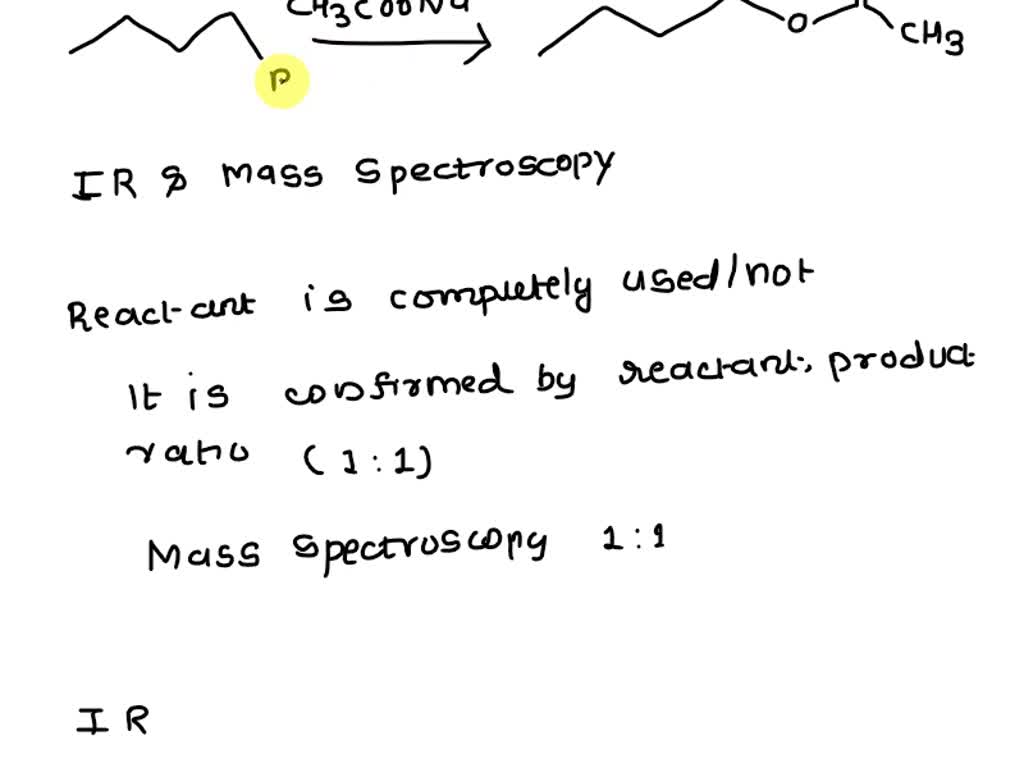 CH3COONa
O
CH3
IR & Mass Spectroscopy
React-ant is completely used/not
It is confirmed by reactant, product
ratio (1:1)
Mass spectroscopy 1:1
IR